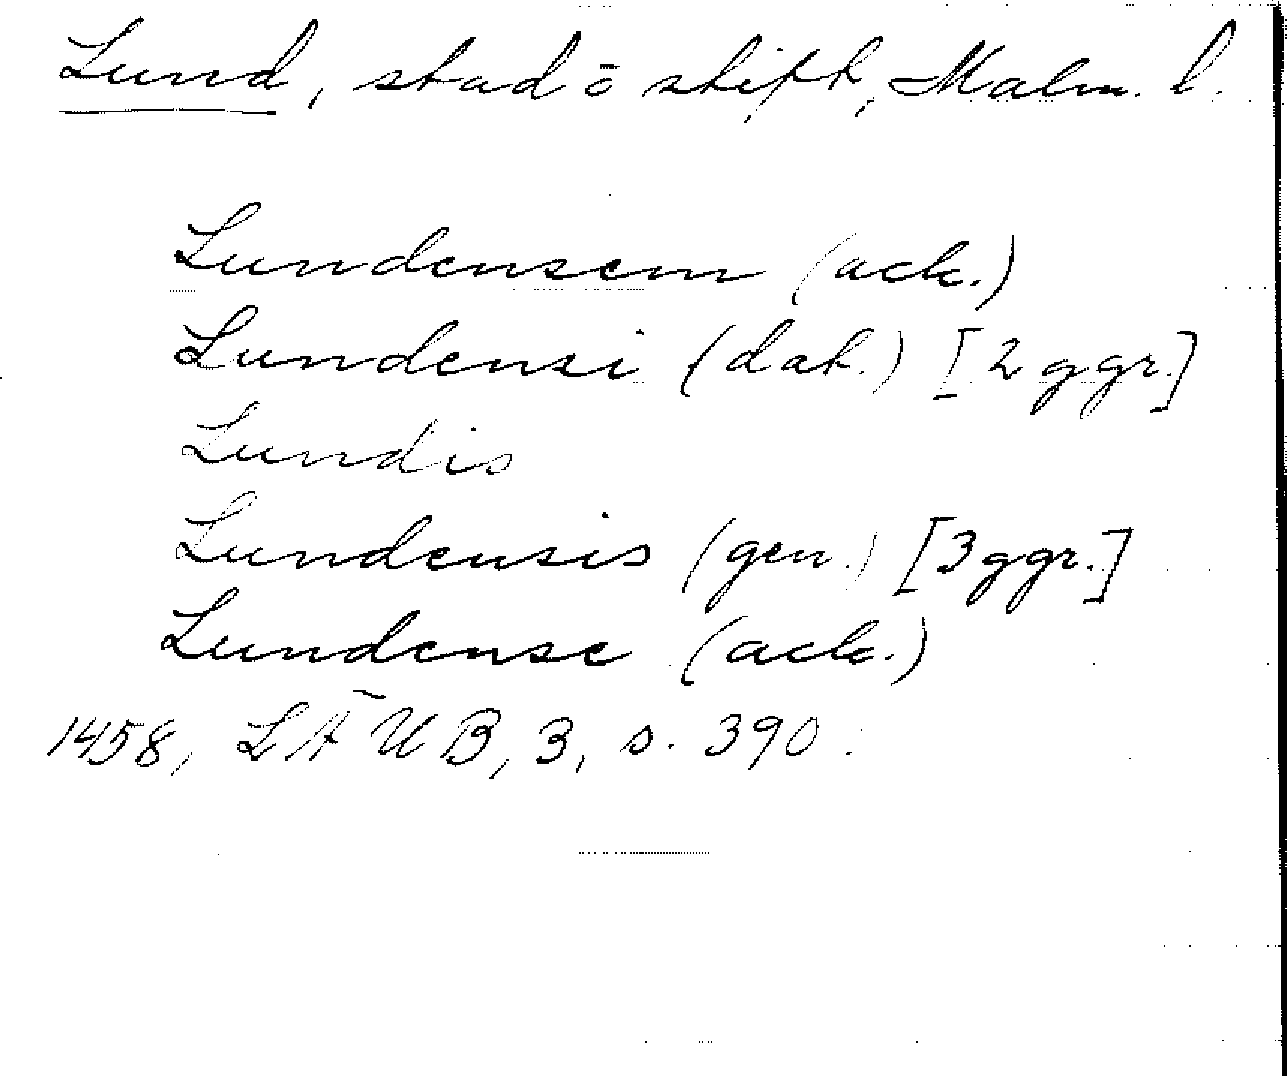 Lund, stad o stift, Malm. l.
Lundensem (ack.)
Lundensi (dat.) [2 ggr.]
Lundis
Lundensis (gen.) [3 ggr.]
Lundense (ack.)
1458, LÄUB, 3, s. 390.